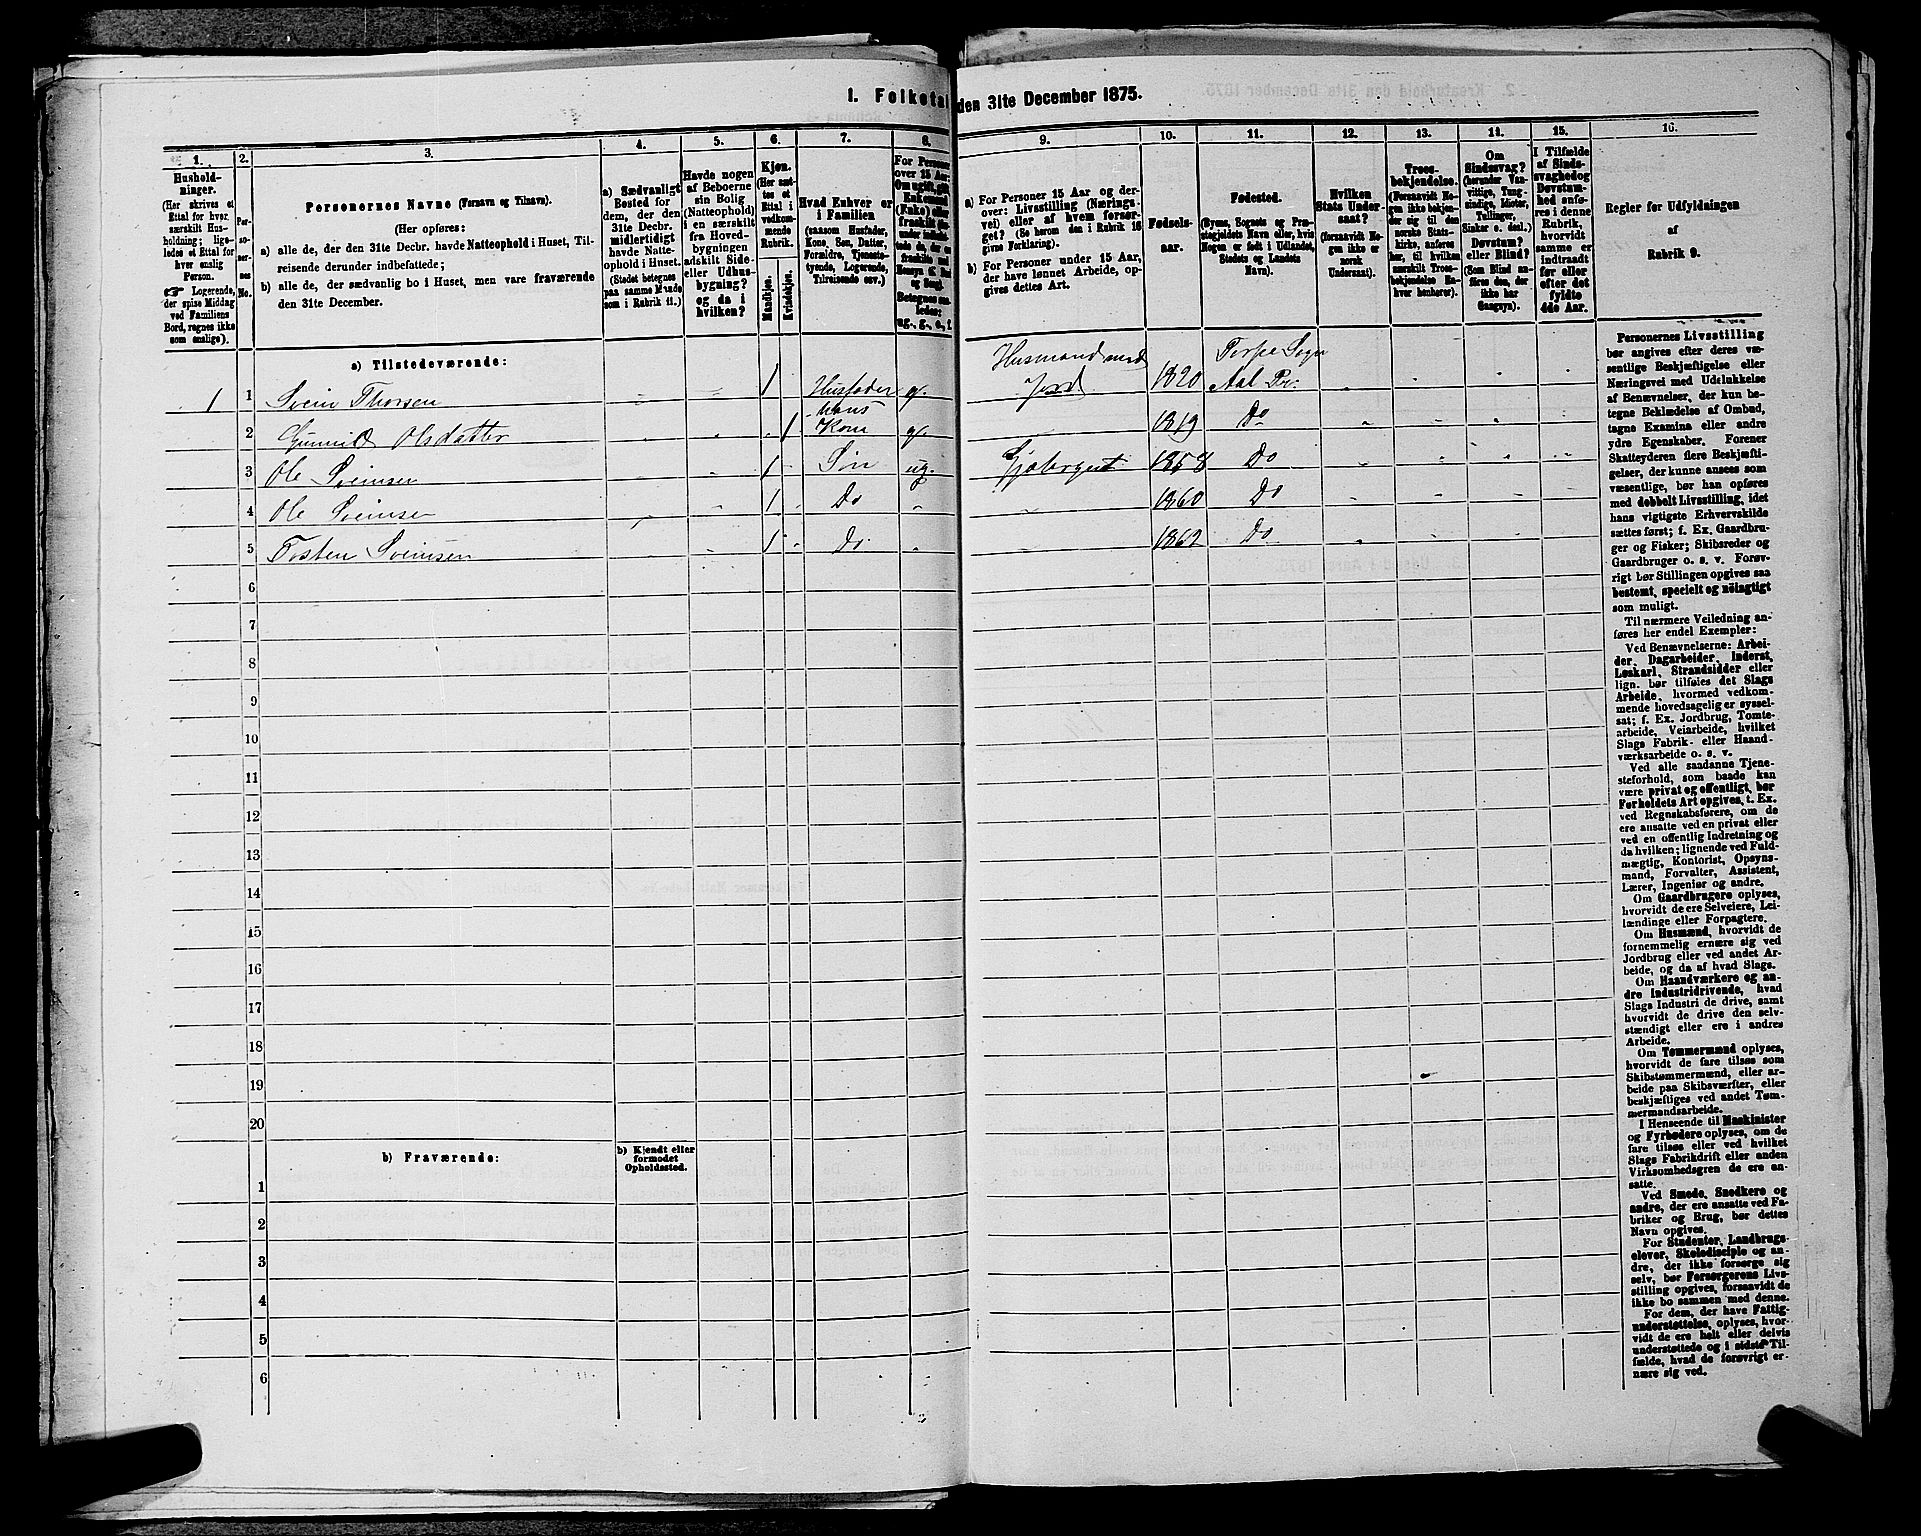 1. Folketal den 31te December 1875.
1.
2.
3.
4.
5.
6.
7.
8.
9.
10.
11.
12.
13.
14.
15.
16.
Hushold-
ninger.
(Her skrives et
Ettal for hver
særskilt Hus-
holdning; lige-
ledes et Ettal for
hver enslig
Person.
☞ Logerende,
der spise Middag
ved Familiens
Bord, regnes ikke
som enslige).
Per-
so-
ner-
nes
No.
Personernes Navne (Fornavn og Tilnavn).
(Her opføres:
a) alle de, der den 31te Decbr. havde Natteophold i Huset, Til-
reisende derunder indbefattede;
b) alle de, der sædvanlig bo i Huset, men vare fraværende
den 31te December.
a) Sædvanligt
Bosted for
dem, der den
31te Decbr.
midlertidigt
havde Natte-
ophold i Huset.
(Stedet betegnes
paa samme Maade
som i Rubrik 11.)
Havde nogen
af Beboerne
sin Bolig
(Natteophold)
i en særskilt
fra Hoved-
bygningen
adskilt Side-
eller Udhus-
bygning?
og da i
hvilken?
Kjøn.
(Her sæt-
tes et
Ettal i
vedkom-
mende
Rubrik.
Mandkjøn.
Kvindekjøn.
Hvad Enhver er
i Familien
(saasom Husfader,
Kone, Søn, Datter,
Forældre, Tjeneste-
tyende, Logerende,
Tilreisende osv.)
For Personer
over 15 Aar:
Om ugift, gift,
Enkemand
(Enke) eller
fraskilt
Betegnes saa-
ledes:
ug., g., e., f.
a) For Personer 15 Aar og der-
over: Livsstilling (Nærings-
vei) eller af hvem forsør-
get? (Se herom den i Rubrik 16
givne Forklaring).
b) For Personer under 15 Aar,
der have lønnet Arbeide, op-
gives dettes Art.
Fødsels-
aar.
Fødested.
(Byens, Sognets og Præ-
stegjeldets Navn eller, hvis
Nogen er født i Udlandet,
Stedets og Landets
Navn).
Hvilken
Stats Under-
saat?
(forsaavidt No-
gen ikke er
norsk
Undersaat).
Troes-
bekjendelse.
(Forsaavidt No-
gen ikke bekjen-
der sig til den
norske Stats-
kirke, anføres
her, til hvilken
særskilt Troes-
bekjendelse En-
hver henhører).
Om
Sindssvag?
(herunder Van-
vittige, Tung-
sindige, Idioter,
Tullinger,
Sinker o. desl.)
Døvstum?
eller Blind?
(Som Blind an-
føres den, der
ikke har
Gangsyn).
I Tilfælde
af Sinds-
svaghed og
Døvstum-
hed anfø-
res i denne
Rubrik,
hvorvidt
samme er
indtraadt
før eller
efter det
fyldte
4de Aar.
Regler for Udfyldningen
af
Rubrik 9.
a) Tilstedeværende:
1 1 Svein Thorsen 1 Husfader g. Husmand med Jord 1820 Torpe Sogn Aal Pr:
2 Gunnild Olsdatter 1 Hans Kone g. 1819 Do
3 Ole Sveinsen 1 Søn ug. Gjetergut 1858 Do
4 Ole Sveinsen 1 Do 1860 Do
5 Tosten Sveinsen 1 Do 1862 Do
6
7
8
9
10
11
12
13
14
15
16
17
18
19
20
b) Fraværende:
b) Kjendt eller
formodet
Opholdssted.
1
2
3
4
5
6
Personernes Livsstilling
bør angives efter deres væ-
sentlige Beskjæftigelse eller
Næringsvei med Udelukkelse
af Benævnelser, der kun be-
tegne Beklædelse af Ombud,
tagne Examina eller andre
ydre Egenskaber. Forener
Skatteyderen flere Beskjæfti-
gelser, der kunne ansees som
væsentlige, bør han opføres
med dobbelt Livsstilling, idet
hans vigtigste Erhvervskilde
sættes først; f. Ex. Gaardbru-
ger og Fisker; Skibsreder og
Gaardbruger o. s. v. Forøv-
rigt bør Stillingen opgives saa
bestemt, specielt og nöiagtigt
som muligt.
Til nærmere Veiledning an-
føres her endel Exempler:
Ved Benævnelserne: Arbei-
der, Dagarbeider, Inderst,
Løskarl, Strandsidder eller
lign. bør tilføies det Slags
Arbeide, hvormed vedkom-
mende hovedsagelig er syssel-
sat; f. Ex. Jordbrug, Tomte-
arbeide, Veiarbeide, hvilket
Slags Fabrik- eller Haand-
værksarbeide o. s. v.
Ved alle saadanne Tjene-
steforhold, som baade kan
være privat og offentligt, bør
Forholdets Art opgives, t. Ex.
ved Regnskabsførere, om de
ere ansatte ved en privat eller
ved en offentlig Indretning og
da hvilken; lignende ved Fuld-
mægtig, Kontorist, Opsyns-
mand, Forvalter, Assistent,
Lærer, Ingeniør og andre.
Om Gaardbrugere oplyses,
hvorvidt de ere Selveiere, Lei-
lændinge eller Forpagtere.
Om Husmænd, hvorvidt de
fornemmelig ernære sig ved
Jordbrug eller ved andet Ar-
beide, og da af hvad Slags.
Om Haandværkere og an-
dre Industridrivende, hvad
Slags Industri de drive, samt
hvorvidt de drive den selv-
stændigt eller ere i andres
Arbeide.
Om Tømmermænd oplyses,
hvorvidt de fare tilsøs som
Skibstømmermænd, eller ar-
beide paa Skibsværfter, eller
beskjæftiges ved andet Tøm-
mermandsarbeide.
I Henseende til Maskinister
og Fyrbødere oplyses, om de
fare tilsøs eller ved hvilket
Slags Fabrikdrift eller anden
Virksomhedsgren de ere an-
satte.
Ved Smede, Snedkere og
andre, der ere ansatte ved Fa-
briker og Brug, bør dettes
Navn opgives.
For Studenter, Landbrugs-
elever, Skoledisciple og an-
dre, der ikke forsørge sig
selv, bør Forsørgerens Livs-
stilling opgives, forsaavidt de
ikke bo sammen med denne.
For dem, der have Fattig-
understøttelse, oplyses, hvor-
vidt de ere helt eller delvis
understøttede og i sidste Til-
fælde, hvad de forøvrigt er-
nære sig ved.